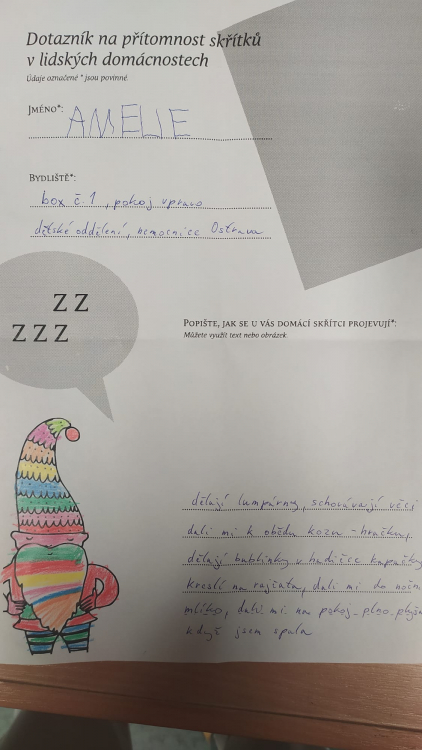 Dotazník na přítomnost skřítků
v lidských domácnostech
Údaje označené * jsou povinné.
Jméno*:
AMELIE
Bydliště*:
box č. 1, pokoj vpravo
dětské oddělení, nemocnice Ostrava
Z Z
Z Z Z
Popište, jak se u vás domácí skřítci projevují*:
Můžete využít text nebo obrázek.
dělají lumpárny, schovávají věci
dali mi k obědu kozu -
dělají bublinky v hadičce kapačky
kreslí na rajčata, dali mi do
mlíko, dali mi na pokoj plno
když jsem spala